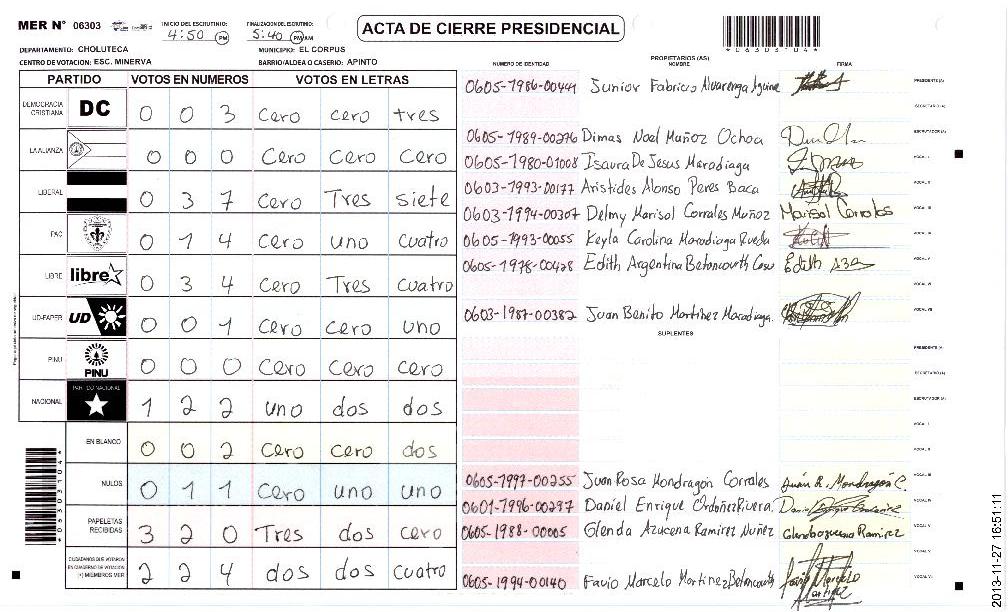 MER Nº 06303 INICIO DEL ESCRUTINIO: 4:50 PM FINALIZACION DEL ESCRUTINIO: 5:40 PM/AM ACTA DE CIERRE PRESIDENCIAL
*0630304*
DEPARTAMENTO: CHOLUTECA MUNICIPIO: EL CORPUS
CENTRO DE VOTACION: ESC. MINERVA BARRIO/ALDEA O CASERIO: APINTO
NUMERO DE IDENTIDAD PROPIETARIOS (AS) NOMBRE FIRMA
PARTIDO VOTOS EN NUMEROS VOTOS EN LETRAS
DEMOCRACIA CRISTIANA DC 0 0 3 Cero cero tres
LA ALIANZA 0 0 0 Cero Cero Cero
LIBERAL 0 3 7 Cero Tres siete
PAC 0 1 4 Cero uno cuatro
LIBRE libre 0 3 4 Cero Tres cuatro
UD-FAPER UD 0 0 1 Cero Cero uno
PINU PINU 0 0 0 Cero Cero cero
NACIONAL PARTIDO NACIONAL 1 2 2 uno dos dos
EN BLANCO 0 0 2 cero cero dos
NULOS 0 1 1 Cero uno uno
PAPELETAS RECIBIDAS 3 2 0 Tres dos cero
CIUDADANOS QUE VOTARON EN CUADERNO DE VOTACION (+) MIEMBROS MER 2 2 4 dos dos cuatro
*0630304*
0605-1986-00441 Junior Fabricio Alvarenga PRESIDENTE (A)
SECRETARIO (A)
0605-1989-00276 Dimas Noel Muñoz Ochoa ESCRUTADOR (A)
0605-1980-01008 Isaura De Jesus Maradiaga VOCAL I
0603-1993-00177 Aristides Alonso Peres Baca VOCAL II
0603-1994-00307 Delmy Marisol Corrales Muñoz Marisol Corrales VOCAL III
0605-1993-00055 Keyla Carolina Maradiaga Rueda VOCAL IV
0605-1978-00428 Edith Argentina Betancourth Edith VOCAL V
VOCAL VI
0603-1987-00382 Juan Benito Martinez Maradiaga. VOCAL VII
SUPLENTES
PRESIDENTE (A)
SECRETARIO (A)
ESCRUTADOR (A)
VOCAL I
VOCAL II
0605-1997-00255 Juan Rosa Mondragón Corrales Juan R. Mondragón C. VOCAL III
0601-1996-00297 Daniel Enrique Ordoñez Rivera Daniel VOCAL IV
0605-1988-00005 Glenda Azucena Ramirez Nuñez Glenda azucena Ramirez VOCAL V
VOCAL VI
0605-1994-00140 Favio Marcelo Martinez Betancourth Favio Marcelo Martinez VOCAL VII
2013-11-27 16:51:11